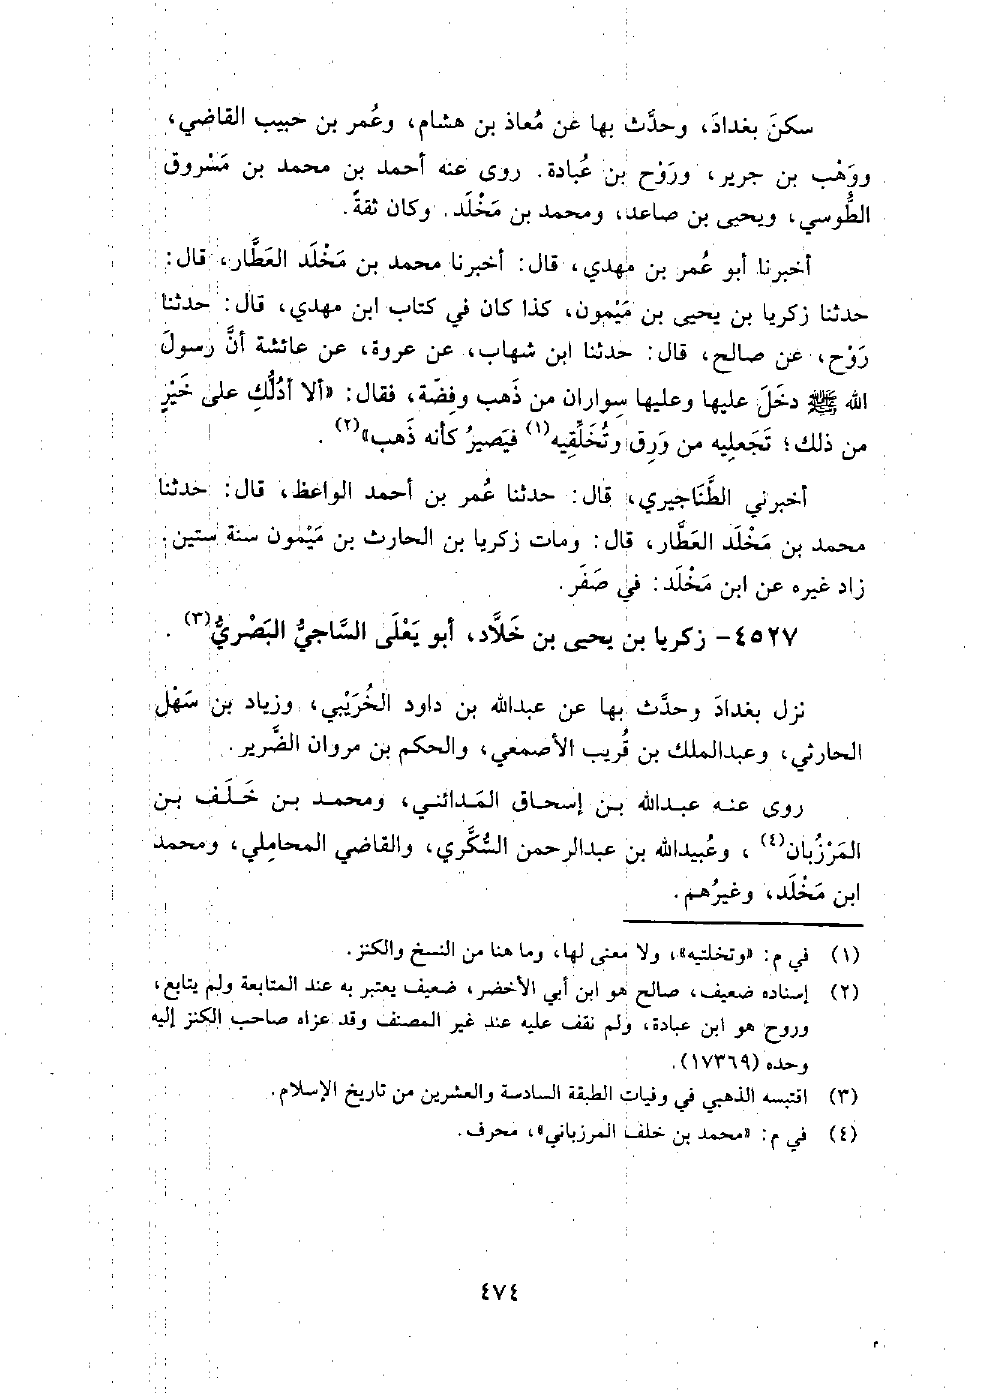 سكنَ بغدادَ، وحدَّث بها عن مُعاذ بن هشام، وعُمر بن حبيب القاضي،
ووَهْب بن جرير، ورَوْح بن عُبادة. روى عنه أحمد بن محمد بن مَسْروق
الطُّوسي، ويحيى بن صاعد، ومحمد بن مَخْلَد. وكان ثقةً.
أخبرنا أبو عُمر بن مهدي، قال: أخبرنا محمد بن مَخْلَد العَطَّار، قال:
حدثنا زكريا بن يحيى بن مَيْمون، كذا كان في كتاب ابن مهدي، قال: حدثنا
رَوْح، عن صالح، قال: حدثنا ابن شهاب، عن عروة، عن عائشة أنَّ رسولَ
الله ﷺ دخَلَ عليها وعليها سِواران من ذَهب وفِضّة، فقال: «ألا أدُلُّكِ على خَيْرٍ
من ذلك؛ تَجعلِيه من وَرِق وتُخَلِّقِيه(١) فيَصيرُ كأنه ذَهب»(٢).
أخبرني الطَّنَاجيري، قال: حدثنا عُمر بن أحمد الواعظ، قال: حدثنا
محمد بن مَخْلَد العَطَّار، قال: ومات زكريا بن الحارث بن مَيْمون سنة ستين.
زاد غيره عن ابن مَخْلَد: في صَفَر.
٤٥٢٧- زكريا بن يحيى بن خَلَّاد، أبو يَعْلَى السَّاجيُّ البَصْريُّ(٣).
نزل بغدادَ وحدَّث بها عن عبدالله بن داود الخُرَيْبي، وزياد بن سَهْل
الحارثي، وعبدالملك بن قُريب الأصمعي، والحكم بن مروان الضَّرير.
روى عنه عبدالله بن إسحاق المَدائني، ومحمد بن خَلَف بن
المَرْزُبان(٤)، وعُبيدالله بن عبدالرحمن السُّكَّري، والقاضي المحاملي، ومحمد
ابن مَخْلَد، وغيرُهم.
(١) في م: «وتخلتيه»، ولا معنى لها، وما هنا من النسخ والكنز.
(٢) إسناده ضعيف، صالح هو ابن أبي الأخضر، ضعيف يعتبر به عند المتابعة ولم يتابع،
وروح هو ابن عبادة، ولم نقف عليه عند غير المصنف وقد عزاه صاحب الكنز إليه
وحده (١٧٣٦٩).
(٣) اقتبسه الذهبي في وفيات الطبقة السادسة والعشرين من تاريخ الإسلام.
(٤) في م: «محمد بن خلف المرزباني»، محرف.
٤٧٤